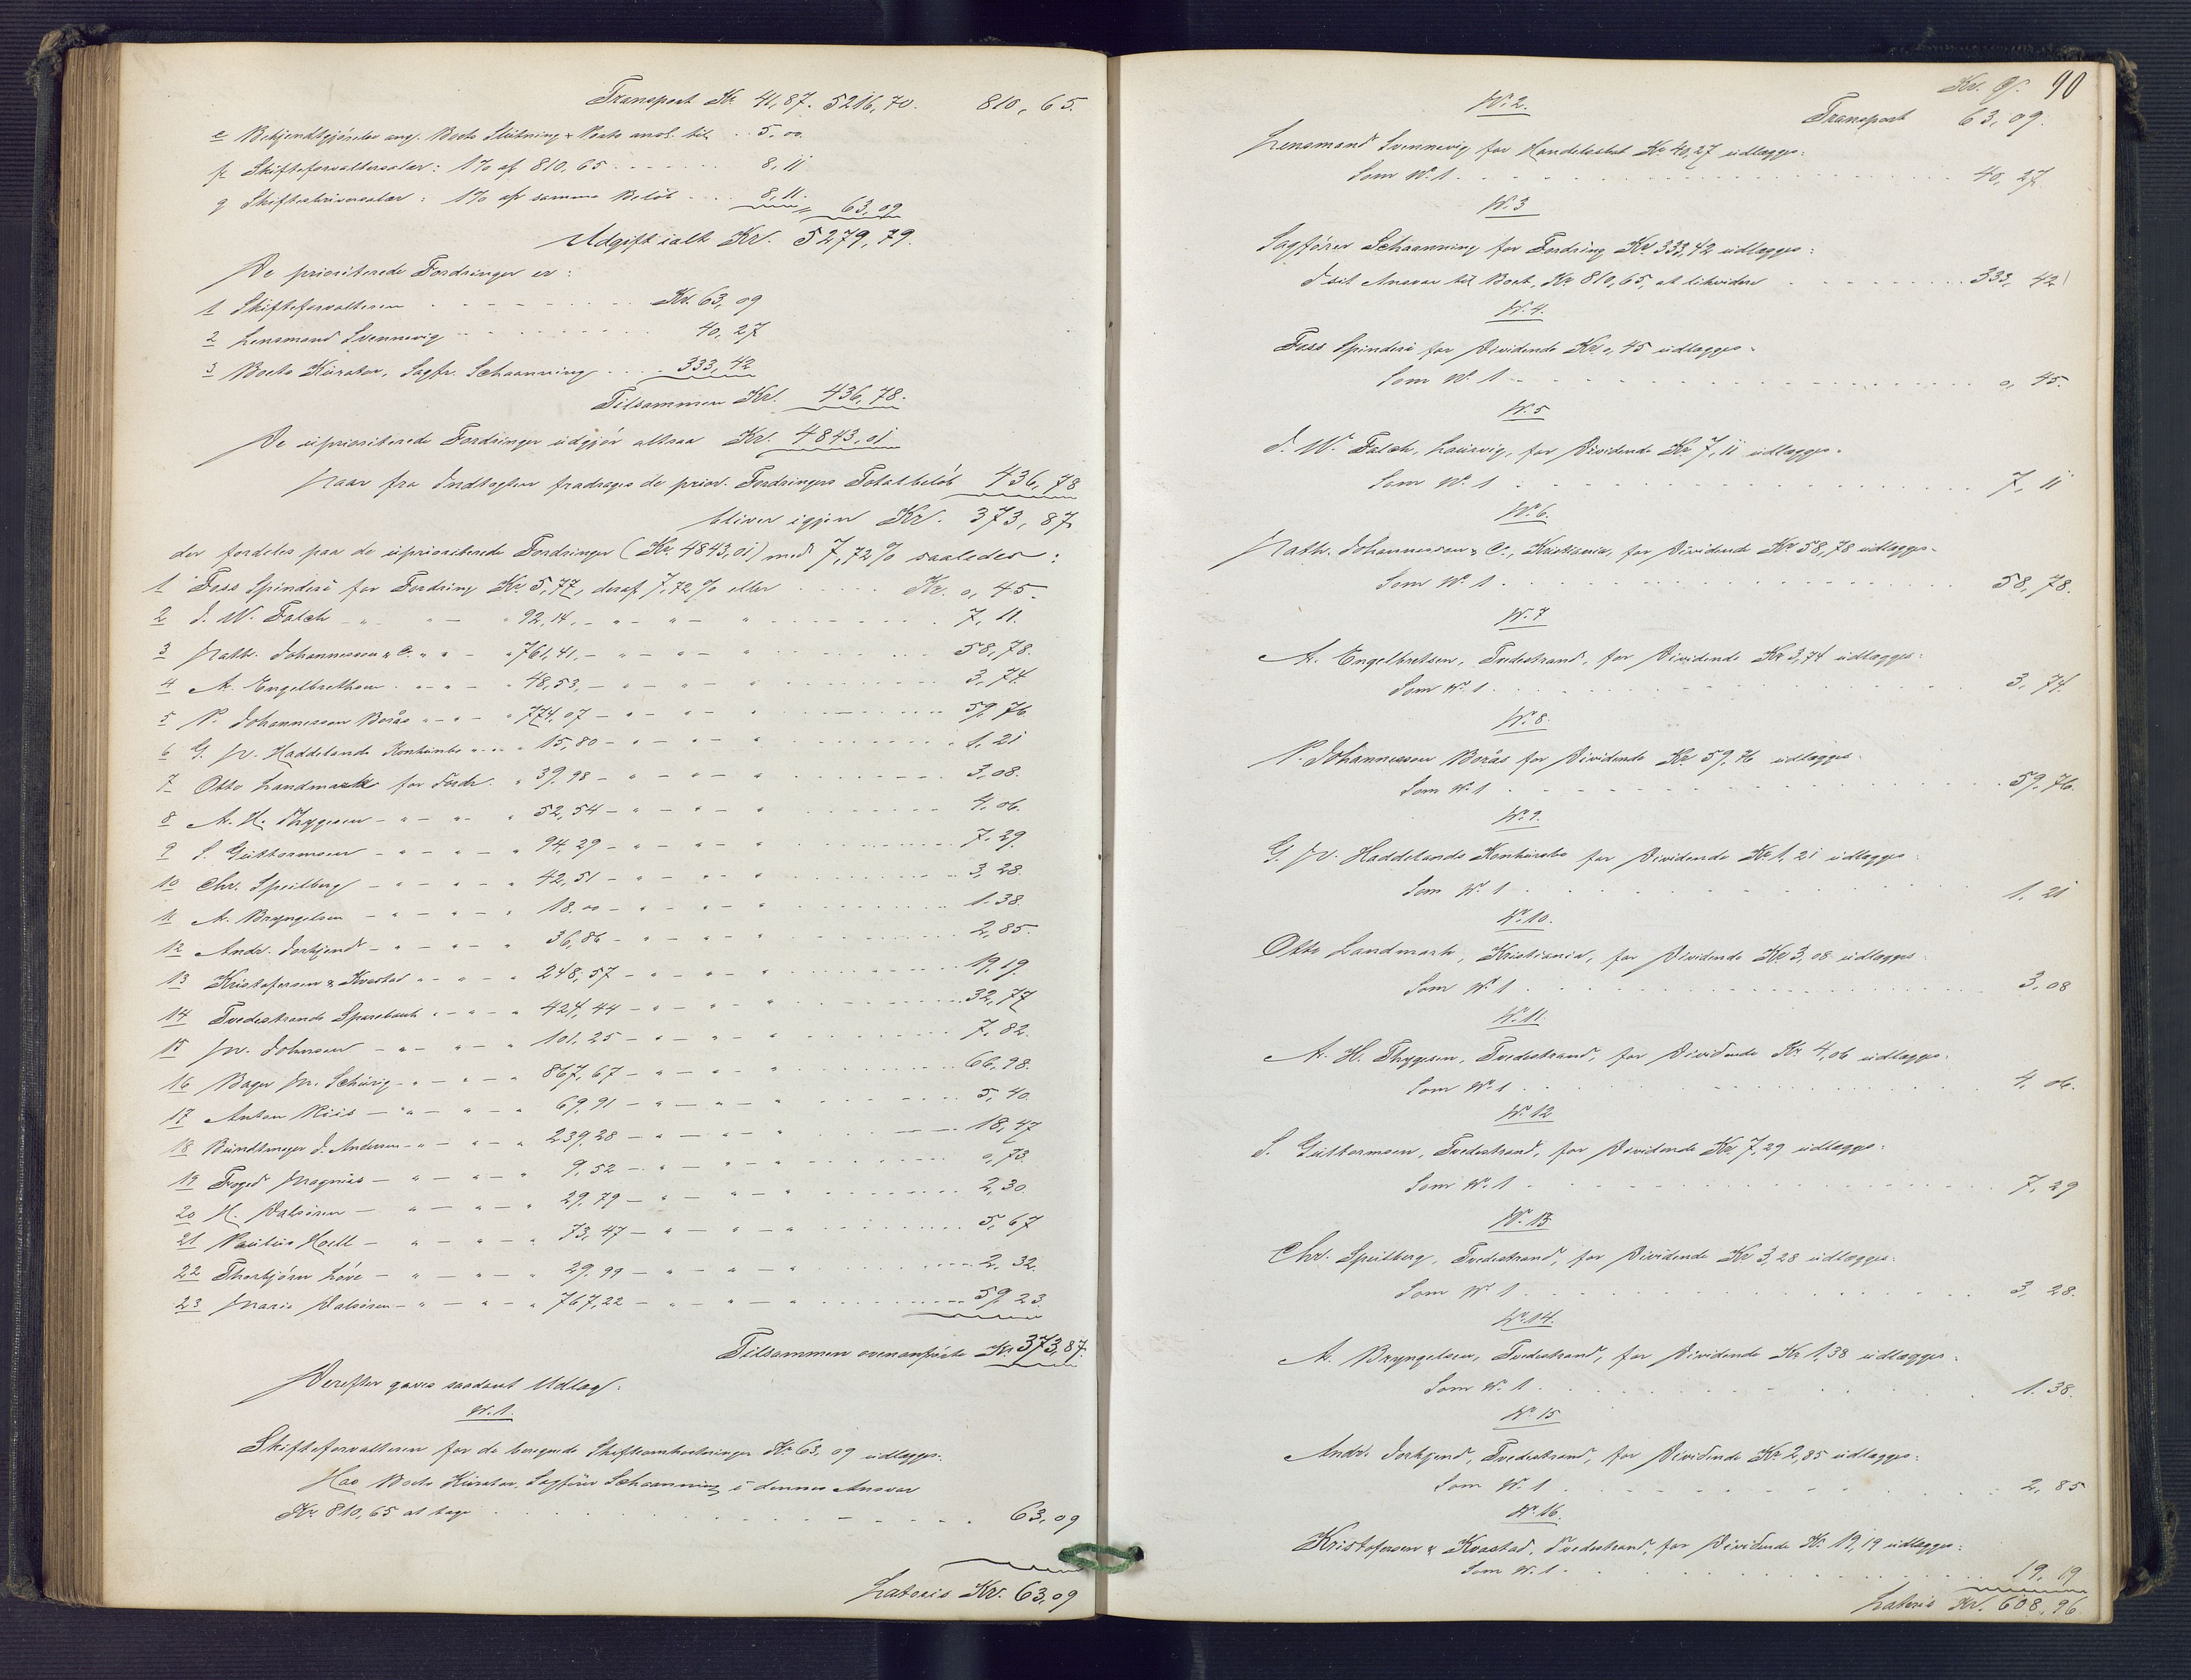 Transport Kr. 41,87. 5216,70. 810,65.
e Bekjendtgjørelse ang. Boets Slutning & Porto ansl. til .. 5,00
f Skifteforvaltersalær: 1% af 810,65 ...... 8,11
g Skifteskriversalær: 1% af samme Beløb .... 8,11. " 63,09
Udgift ialt Kr. 5279,79.
De prioriterede Fordringer er:
1 Skifteforvalteren ........ Kr. 63,09
2 Lensmand Svennevig ........ 40,27
3 Boets Kurator, Sagfr. Schanning .... 333,42
Tilsammen Kr. 436,78.
De uprioriterede Fordringer udgjør altsaa Kr. 4843,01
Naar fra Indtægten fradrages de prior. Fordringers Totalbeløb 436,78
bliver igjen Kr. 373,87
der fordeles paa de uprioriterede Fordringer (Kr. 4843,01) med 7,72% saaledes:
1 Foss Spinderi for Fordring Kr. 5,77, deraf 7,72% eller ..... Kr. 0,45.
2 J. W. Falch - " - " 92,14, - " - " - " ........ 7,11.
3 Nath. Johannesson & C. " " - " 761,41, - " - " - " ........ 58,78.
4 A. Engelbrethsen . - " - " 48,53, - " - " - " ........ 3,74.
5 P. Johannesson Borås - " - " 774,07 - " - " - " ........ 59,76
6 G. M. Haddelands Konkursbo " - " 15,80 - " - " - " ........ 1,21
7 Otto Landmark for Fordr. " 39,98 - " - " - " ........ 3,08.
8 A. H. Thygesen - " - " - " 52,54 - " - " - " ........ 4,06.
9 S. Guttormsen - " - " - " 94,29 - " - " - " ........ 7,29.
10 Chr. Speilberg - " - " - " 42,51 - " - " - " ........ 3,28.
11 A. Bryngelsen - " - " - " 18,00 - " - " - " ........ 1.38.
12 Andr. Jorkjend - " - " - " 36,86 - " - " - " ........ 2,85.
13 Kristofersen & Kvastad " - " - " 248,57 - " - " - " ........ 19,19.
14 Tvedestrands Sparebank . - " - " 424,44 - " - " - " ........ 32,77
15 M. Johnsen - " - " - " 101,25 - " - " - " ........ 7,82.
16 Bager M. Schürig - " - " - " 867,67 - " - " - " ........ 66,98.
17 Anton Riis - " - " - " 69,91 - " - " - " ........ 5,40.
18 Bundtmager J. Andersen - " - " - " 239,28 - " - " - " ........ 18,47
19 Foged Magnus - " - " - " 9,52 - " - " - " ........ 0,73.
20 H. Dalsiren - " - " - " 29,79 - " - " - " ........ 2,30.
21 Paulus Holl - " - " - " 73,47 - " - " - " ........ 5,67
22 Thorbjörn Löve - " - " - " 29,99 - " - " - " ........ 2,32.
23 Marie Dalsiren - " - " - " 767,22 - " - " - " ........ 59,23.
Tilsammen ovenanførte Kr. 373,87.
Derefter gaves saadant Udlæg:
N. 1.
Skifteforvalteren for de beregnede Skifteomkostninger Kr. 63,09 udlægges:
Hos Boets Kurator, Sagfører Schanning i dennes Ansvar
Kr. 810,65 at tage ........ 63,09
Lateris Kr. 63,09
Kr. Ø. 90
Transport 63,09.
No. 2.
Lensmand Svennevig for Handelsskat Kr. 40,27 udlægges:
Som No. 1. ........ 40,27.
No. 3
Sagfører Schanning for Fordring Kr. 333,42 udlægges:
I sit Ansvar til Boet, Kr. 810,65, at likvidere ........ 333,42
No. 4.
Foss Spinderi for Dividende Kr. 0,45 udlægges.
Som No. 1 ........ 0,45.
No. 5
J. W. Falch, Laurvig, for Dividende Kr. 7,11 udlægges.
Som No. 1 ........ 7,11
No. 6.
Nath. Johannesson & C., Kristiania, for Dividende Kr. 58,78 udlægges.
Som No. 1 ........ 58,78.
No. 7
A. Engelbretsen, Tvedestrand, for Dividende Kr. 3,74 udlægges:
Som No. 1. ........ 3,74.
No. 8.
P. Johannesson Borås for Dividende Kr. 59,76 udlægges.
Som No. 1 ........ 59,76.
No. 9.
G. M. Haddelands Konkursbo for Dividende Kr. 1,21 udlægges
Som No. 1 ........ 1,21
No. 10.
Otto Landmark, Kristiania, for Dividende Kr. 3,08 udlægges.
Som No. 1 ........ 3,08
No. 11.
A. H. Thygesen, Tvedestrand, for Dividende Kr. 4,06 udlægges.
Som No. 1 ........ 4,06.
No. 12
S. Guttormsen, Tvedestrand, for Dividende Kr. 7,29 udlægges:
Som No. 1 ........ 7,29
No. 13.
Chr. Speilberg, Tvedestrand, for Dividende Kr. 3,28 udlægges:
Som No. 1 ........ 3,28.
No. 14.
A. Bryngelsen, Tvedestrand, for Dividende Kr. 1,38 udlægges.
Som No. 1 ........ 1.38.
No. 15
Andr. Jorkjend, Tvedestrand, for Dividende Kr. 2,85 udlægges:
Som No. 1 ........ 2,85
No. 16.
Kristofersen & Kvastad, Tvedestrand, for Dividende Kr. 19,19 udlægges:
Som No. 1. ........ 19,19
Lateris Kr. 608,96